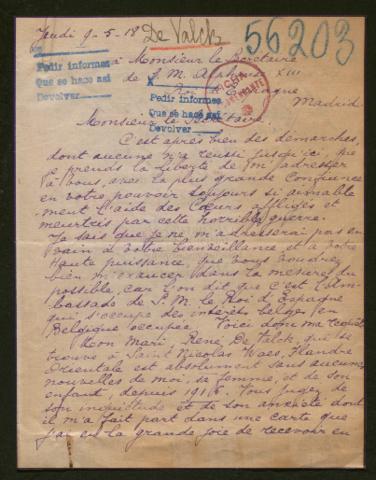 Jeudi 9-5-18
De Valck
56203
à Monsieur le Secrétaire
Pedir informes
de S. M. Alphonse XIII
Que se hace asi
Devolver
Pedir informes
Madrid
Que se hace asi
Devolver
Monsieur le Secrétaire
C'est après bien des démarches,
dont aucune n'a réussi jusqu'ici, que
je prends la liberté de m'adresser
à vous, avec la plus grande confiance
en votre pouvoir toujours si aimable
ment l'aide des Cœurs affligés et
meurtris par cette horrible guerre.
Je sais que je ne m'adresserai pas en
vain à votre bienveillance et à votre
haute puissance, que vous voudrez
bien m'exaucer dans la mesure du
possible, car l'on dit que c'est l'Am-
bassade de S. M. le Roi d'Espagne
qui s'occupe des intérêts belges en
Belgique occupée. Voici donc ma requête
Mon Mari, René De Valck, qui se
trouve à Saint Nicolas Waes, Flandre
Orientale est absolument sans aucunes
nouvelles de moi, sa femme, et de son
enfant, depuis 1916. Vous jugez de
son inquiétude et de son anxiété dont
il m'a fait part dans une carte que
j'ai eu la grande joie de recevoir en